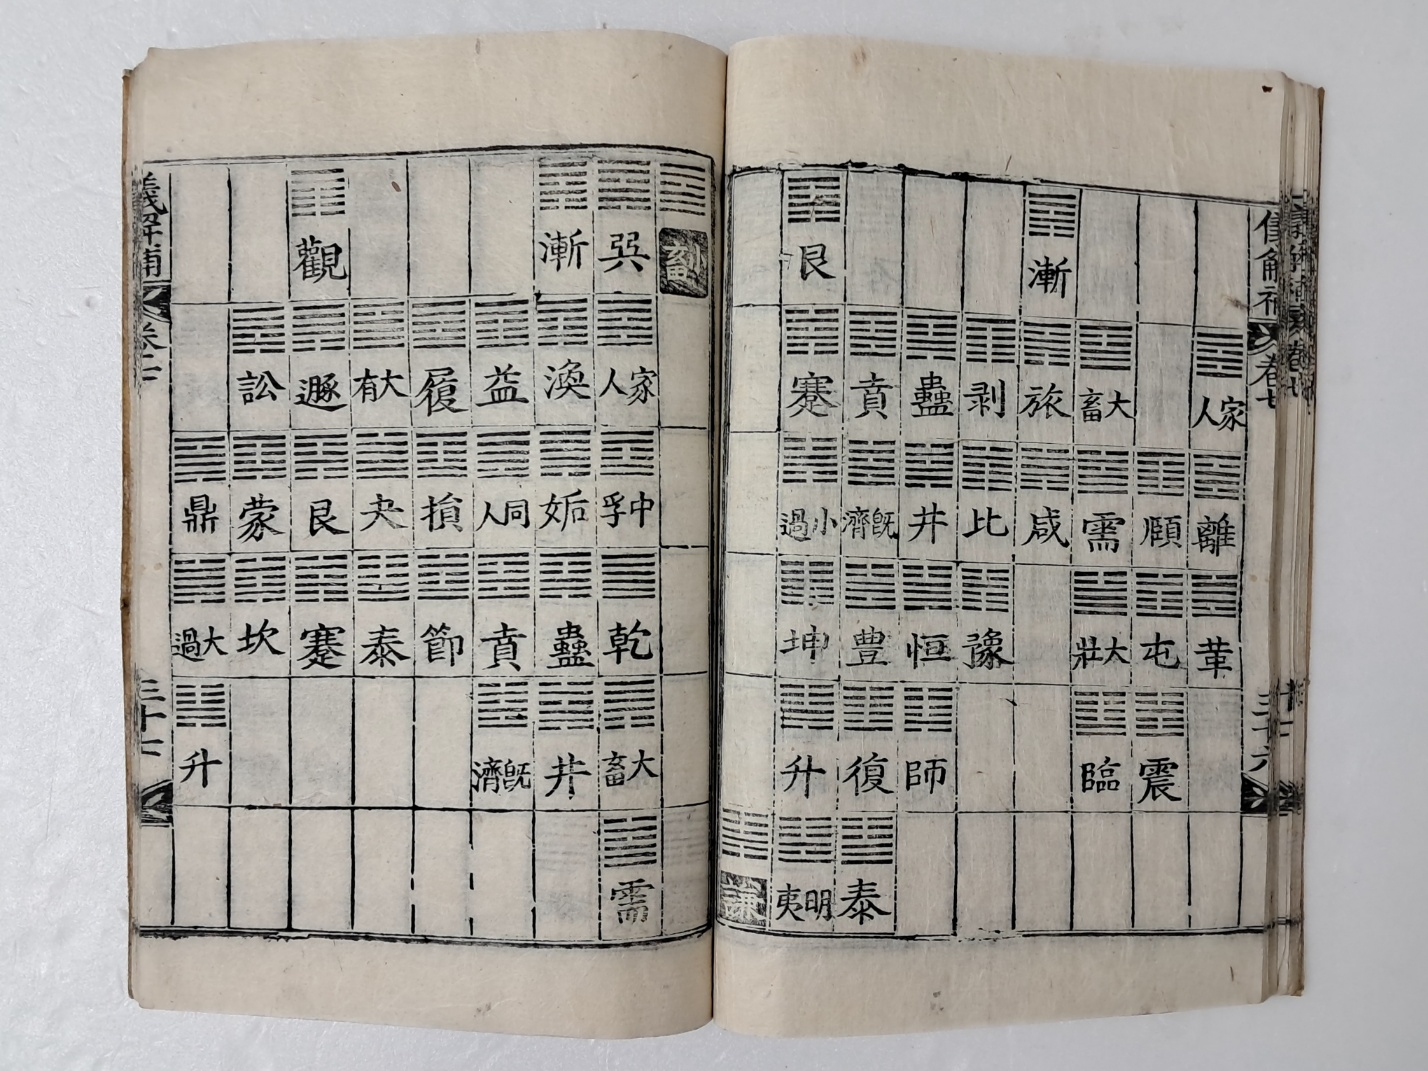 解補 卷七 三十六
家人 離 革
頤 屯 震
大畜 需 大壯 臨
漸 旅 咸
剥 比 豫
蠱 井 恒 師
賁 既濟 豊 復 泰
艮 蹇 小過 坤 升 明夷
謙
小畜
巽 家人 中孚 乾 大畜 需
漸 渙 姤 蠱 井
益 同人 賁 既濟
履 損 節
大有 夬 泰
觀 遯 艮 蹇
訟 蒙 坎
鼎 大過 升
義解補 卷七 三十七